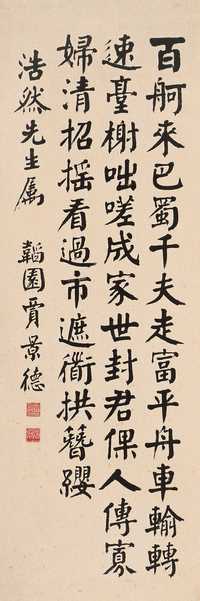 百舸來巴蜀千夫走富平舟車輸轉
速臺榭咄嗟成家世封君倮人傳寡
婦清招搖看過市遮衢拱簪纓
浩然先生属　韜園賈景德